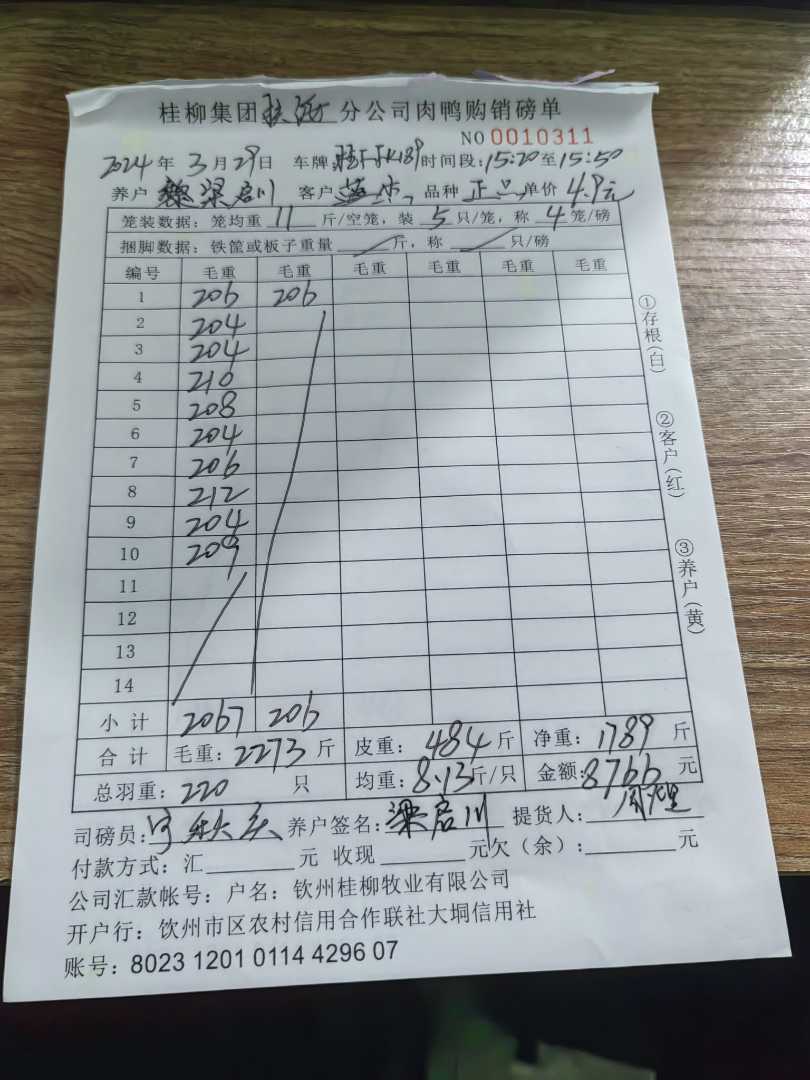 桂柳集团 分公司肉鸭购销磅单
NO 0010311
2024年3月29日 车牌: K189 时间段:15:20至15:50
养户 梁启川 客户 品种 正 单价4.9元
笼装数据:笼均重 11 斤/空笼,装 5 只/笼,称 4 笼/磅
捆脚数据:铁筐或板子重量 / 斤,称 / 只/磅
编号 毛重 毛重 毛重 毛重 毛重 毛重
1 206 206
2 204
3 204
4 210
5 208
6 204
7 206
8 212
9 204
10 209
11
12
13
14
小计 2067 206
合计 毛重:2273斤 皮重:484斤 净重:1789斤
总羽重:220 只 均重:8.13斤/只 金额:8766元
司磅员: 养户签名:梁启川 提货人:
付款方式:汇______元 收现______元欠(余):______元
公司汇款帐号:户名:钦州桂柳牧业有限公司
开户行:饮州市区农村信用合作联社大垌信用社
账号:8023 1201 0114 4296 07
①存根(白)
②客户(红)
③养户(黄)